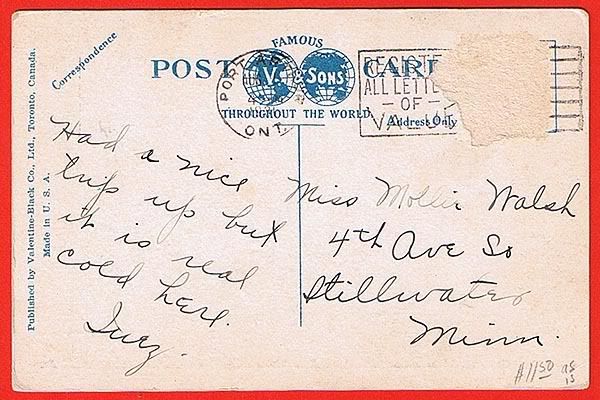 Correspondence
FAMOUS
POST CARD
V. SONS
THROUGHOUT THE WORLD
Address Only
PORT
ONT.
REGISTE
ALL LETTE
- OF -
VALU
Published by Valentine-Black Co., Ltd., Toronto, Canada.
Made in U. S. A.
Had a nice
trip up but
it is real
cold here.
Miss Mollie Walsh
4th Ave So
Stillwater
Minn.
$1150 as
is